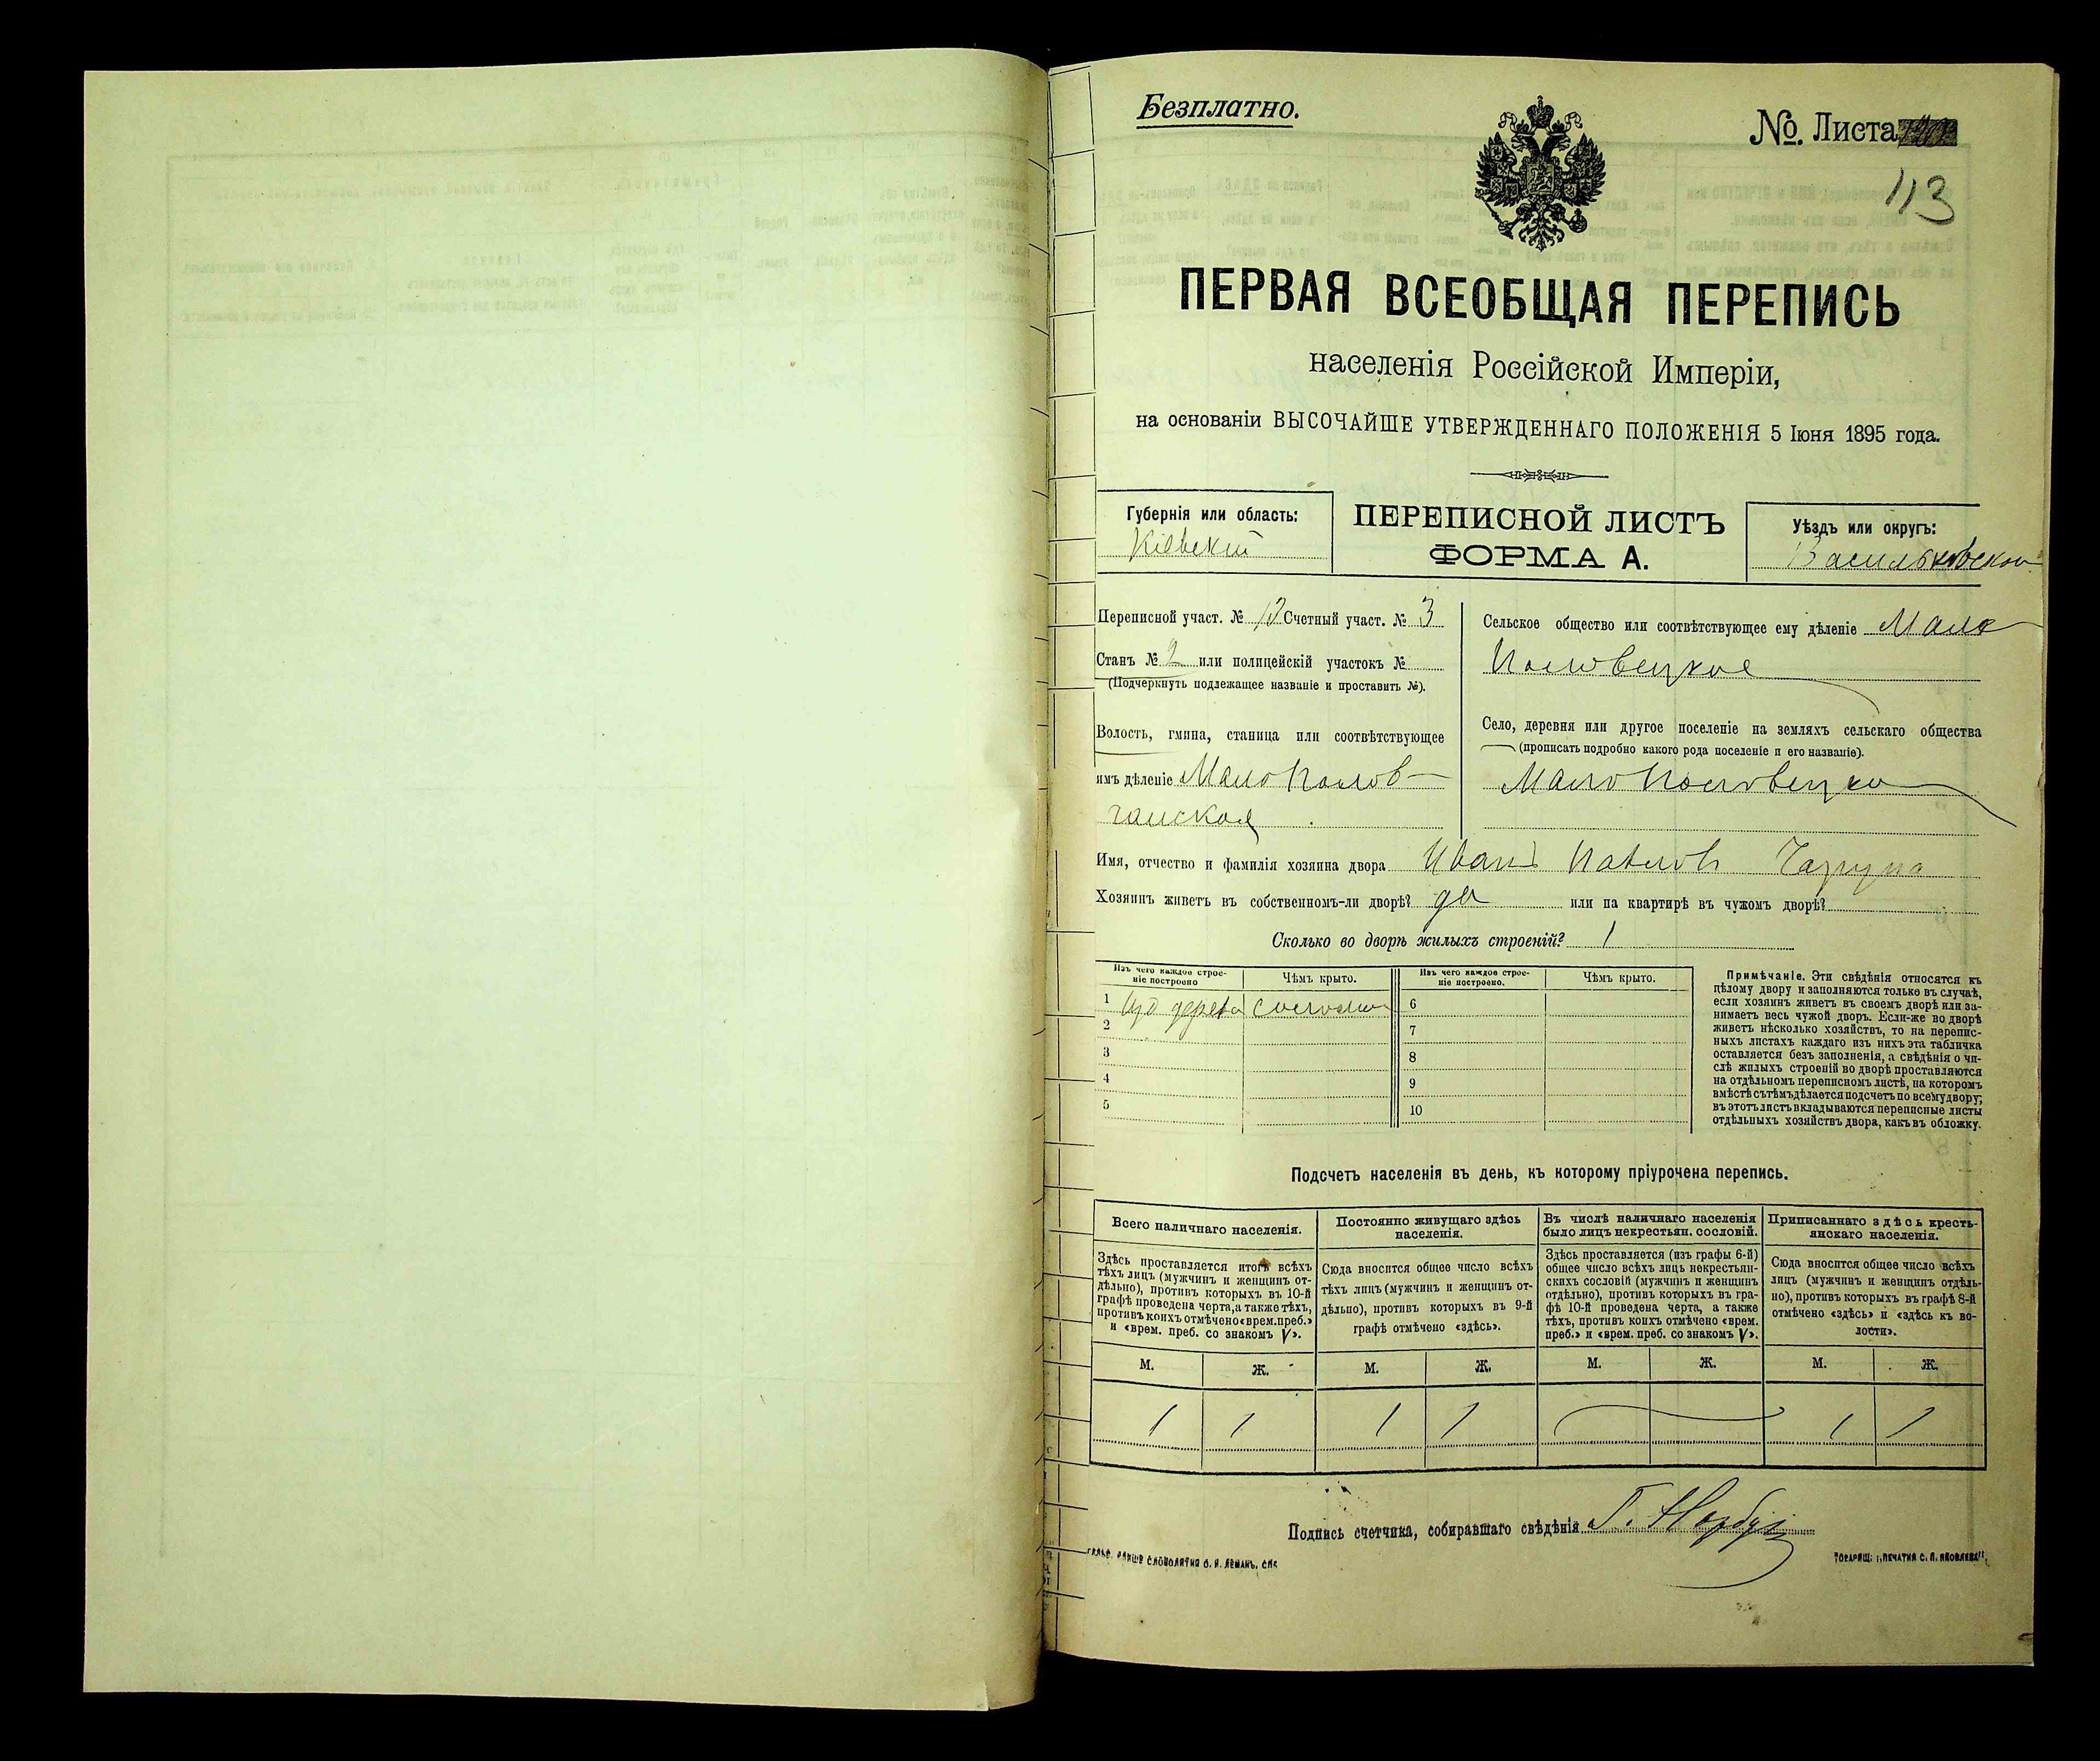 Безплатно.
№. Листа
113
ПЕРВАЯ ВСЕОБЩАЯ ПЕРЕПИСЬ
населенія Россійской Имперіи,
на основаніи ВЫСОЧАЙШЕ УТВЕРЖДЕННАГО ПОЛОЖЕНІЯ 5 Іюня 1895 года.
Губернія или область:
Кіевскій
ПЕРЕПИСНОЙ ЛИСТЪ
ФОРМА А.
Уѣздъ или округъ:
Васильковской
Переписной участ. № 13 Счетный участ. № 3
Станъ № 2 или полицейскій участокъ №
(Подчеркнуть подлежащее названіе и проставить №).
Волость, гмина, станица или соотвѣтствующее
имъ дѣленіе Малополов-
Сельское общество или соотвѣтствующее ему дѣленіе Мало
Половецкое
Село, деревня или другое поселеніе на земляхъ сельскаго общества
(прописать подробно какого рода поселеніе и его названіе).
Малополовецко
Имя, отчество и фамилія хозяина двора Иванъ Павловъ
Хозяинъ живетъ въ собственномъ-ли дворѣ? да или на квартирѣ въ чужомъ дворѣ?
Сколько во дворѣ жилыхъ строеній? 1
Изъ чего каждое строе-
ніе построено
Чѣмъ крыто.
Изъ чего каждое строе-
ніе построено.
Чѣмъ крыто.
1 изъ дерева соломою
2
3
4
5
6
7
8
9
10
Примѣчаніе. Эти свѣдѣнія относятся къ
цѣлому двору и заполняются только въ случаѣ,
если хозяинъ живетъ въ своемъ дворѣ или за-
нимаетъ весь чужой дворъ. Если-же во дворѣ
живетъ нѣсколько хозяйствъ, то на перепис-
ныхъ листахъ каждаго изъ нихъ эта табличка
оставляется безъ заполненія, а свѣдѣнія о чи-
слѣ жилыхъ строеній во дворѣ проставляются
на отдѣльномъ переписномъ листѣ, на которомъ
вмѣстѣ съ тѣмъ дѣлается подсчетъ по всему двору;
въ этотъ листъ вкладываются переписные листы
отдѣльныхъ хозяйствъ двора, какъ въ обложку.
Подсчетъ населенія въ день, къ которому пріурочена перепись.
Всего наличнаго населенія.
Здѣсь проставляется итогъ всѣхъ
тѣхъ лицъ (мужчинъ и женщинъ от-
дѣльно), противъ которыхъ въ 10-й
графѣ проведена черта, а также тѣхъ,
противъ коихъ отмѣчено «врем. преб.»
и «врем. преб. со знакомъ V».
Постоянно живущаго здѣсь
населенія.
Сюда вносится общее число всѣхъ
тѣхъ лицъ (мужчинъ и женщинъ от-
дѣльно), противъ которыхъ въ 9-й
графѣ отмѣчено «здѣсь».
Въ числѣ наличнаго населенія
было лицъ некрестьян. сословій.
Здѣсь проставляется (изъ графы 6-й)
общее число всѣхъ лицъ некрестьян-
скихъ сословій (мужчинъ и женщинъ
отдѣльно), противъ которыхъ въ гра-
фѣ 10-й проведена черта, а также
тѣхъ, противъ коихъ отмѣчено «врем.
преб.» и «врем. преб. со знакомъ V».
Приписаннаго здѣсь кресть-
янскаго населенія.
Сюда вносится общее число всѣхъ
лицъ (мужчинъ и женщинъ отдѣль-
но), противъ которыхъ въ графѣ 8-й
отмѣчено «здѣсь» и «здѣсь къ во-
лости».
М. Ж. М. Ж. М. Ж. М. Ж.
1 1 1 1 1 1
Подпись счетчика, собиравшаго свѣдѣнія